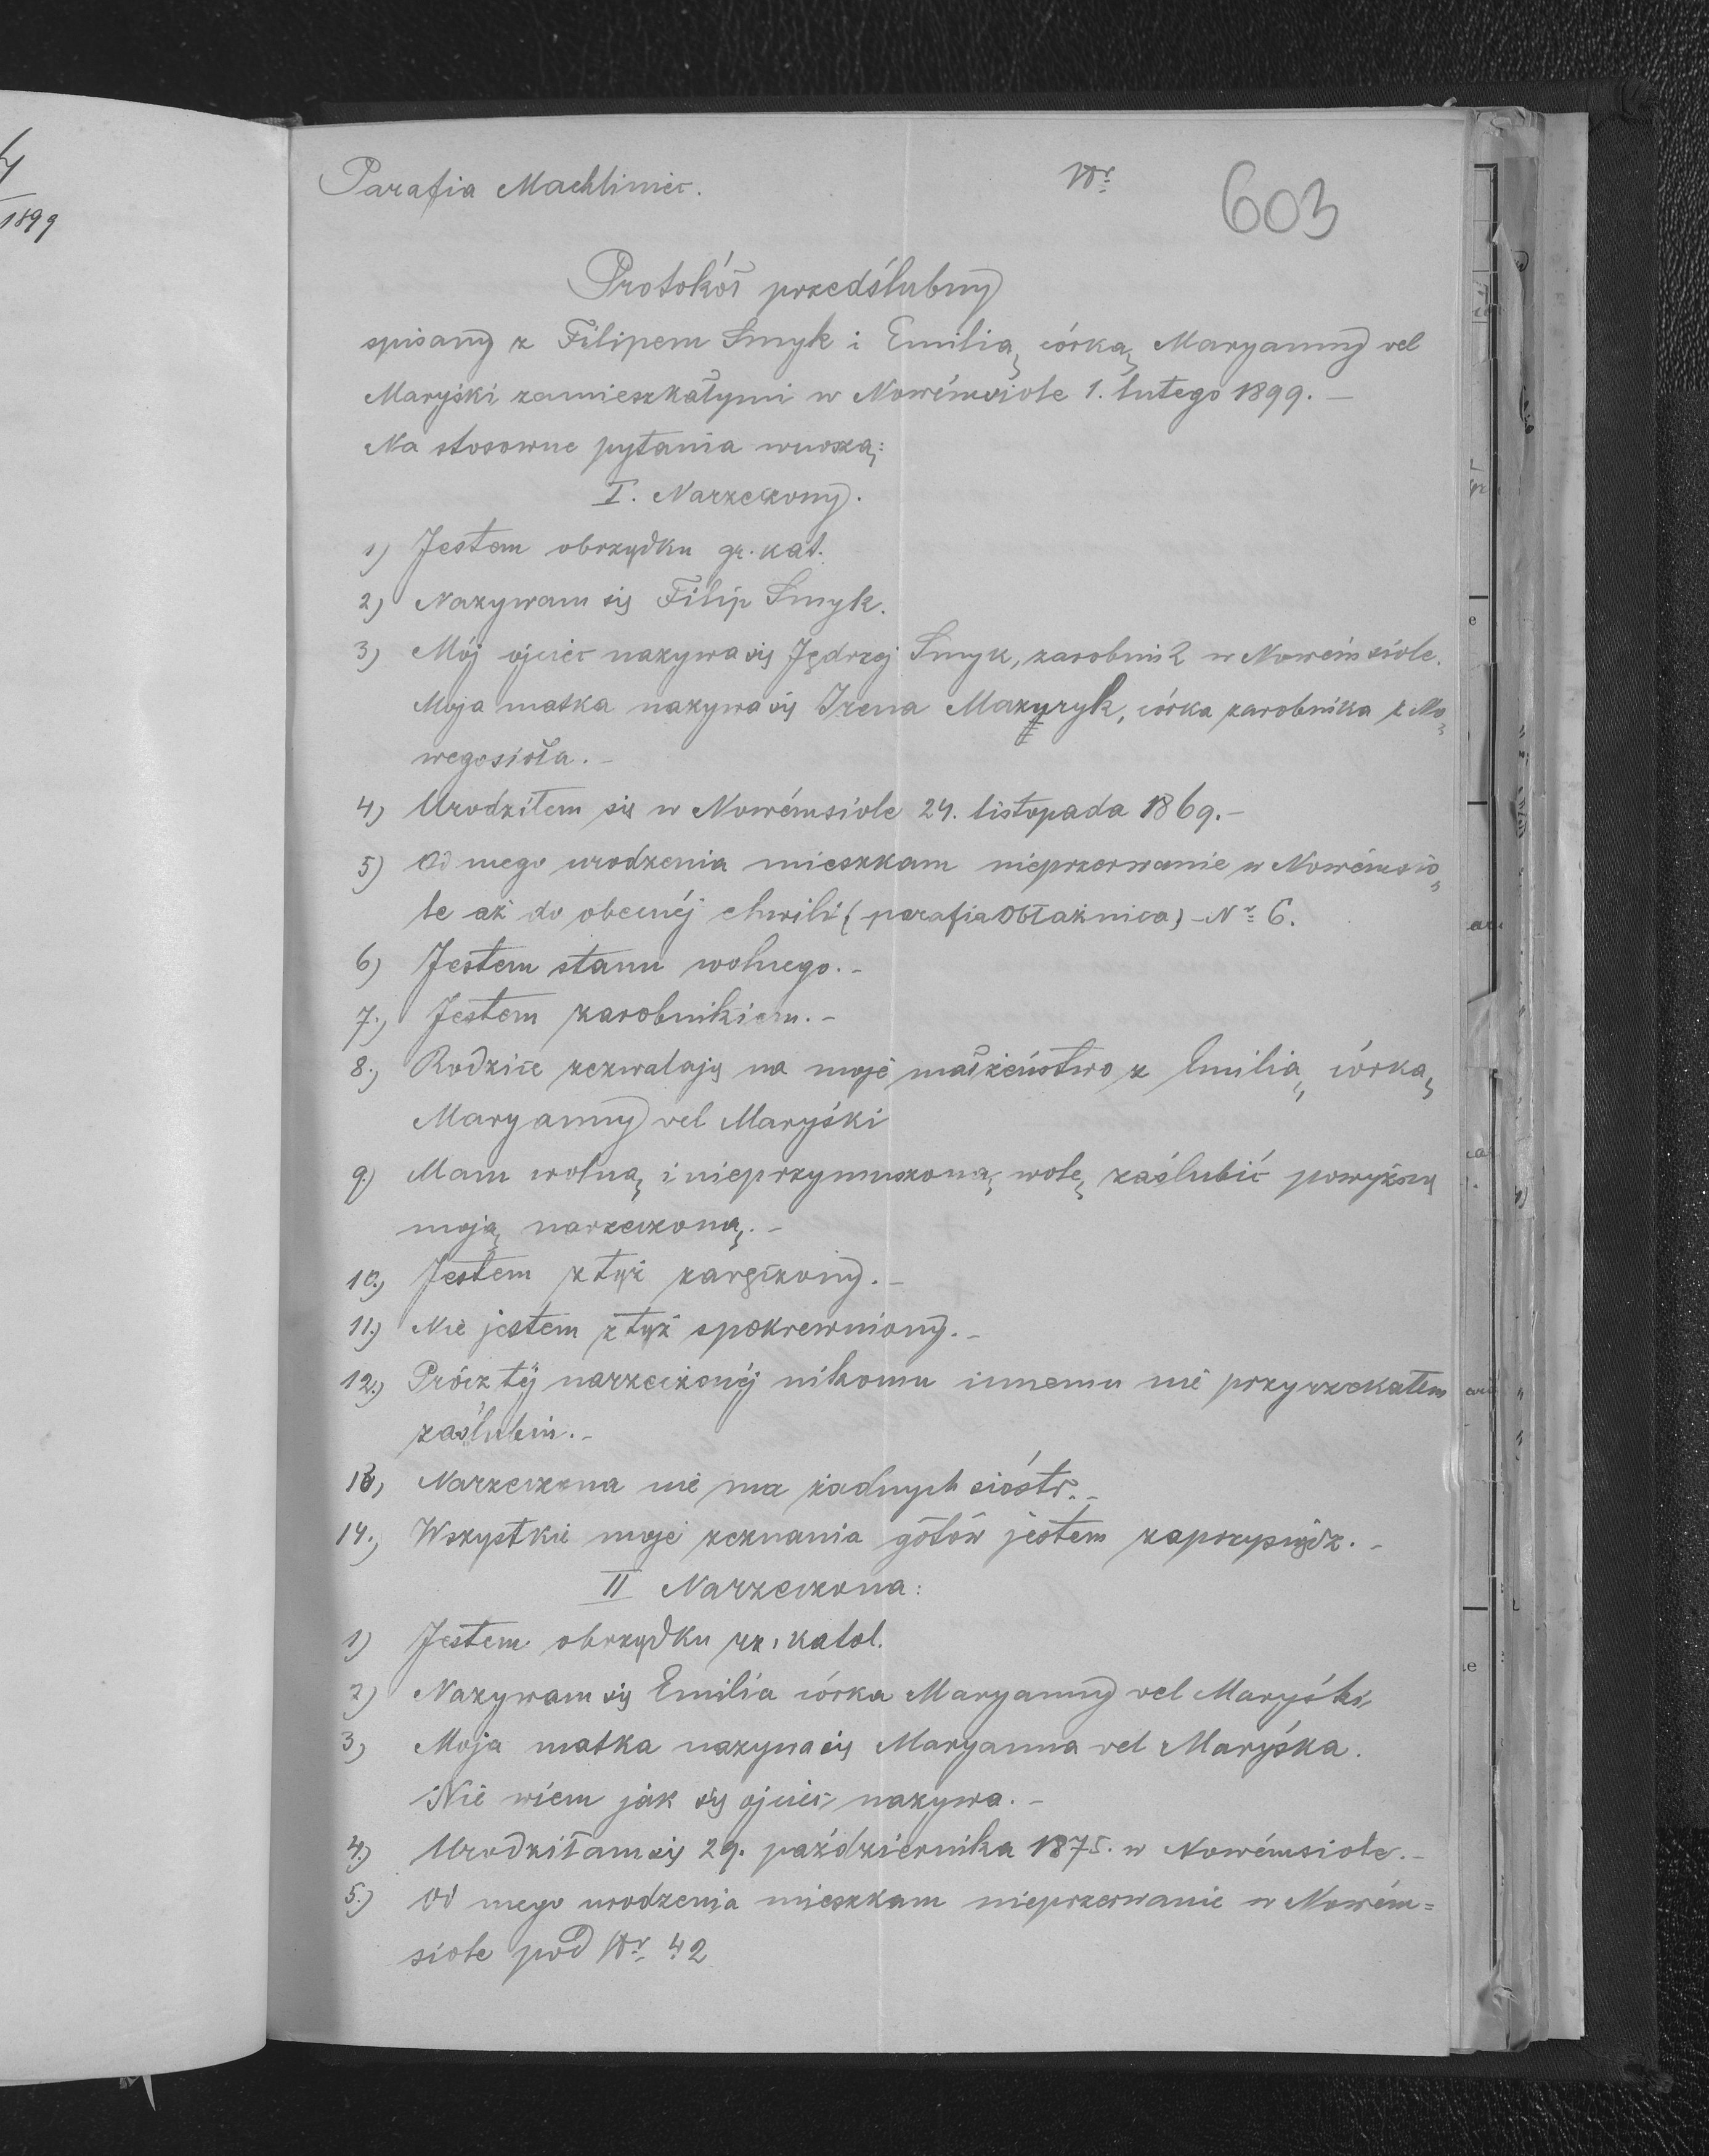 Parafia Machliniec.
Nr
603
Protokół przedślubny
spisany z Filipem Smyk i Emilią, córką Maryanny vel
Maryśki zamieszkałymi w Nowémsiole 1. lutego 1899. –
Na stosowne pytania wnoszą:
I. Narzeczony.
1) Jestem obrządku gr. kat.
2) Nazywam się Filip Smyk.
3) Mój ojciec nazywa się Jędrzej Smyk, zarobnik w Nowém siole.
Moja matka nazywa się Irena Mazuryk, córka zarobnika z No=
wegosioła. –
4) Urodziłem się w Nowémsiole 24. listopada 1869. –
5) Od mego urodzenia mieszkam nieprzerwanie w Nowémsio=
le aż do obecnéj chwili (parafia Obłaźnica) – Nr 6.
6) Jestem stanu wolnego. –
7.) Jestem zarobnikiem. –
8.) Rodzice zezwalają na moje małżeństwo z Emilią, córką
Maryanny vel Maryśki
9) Mam wolną i nieprzymuszoną wolę zaślubić powyższą
moją narzeczoną. –
10.) Jestem z tąż zaręczony. –
11.) Nie jestem z tąż spokrewniony. –
12.) Prócz téj narzeczonéj nikomu innemu nie przyrzekałem
zaślubin. –
13) Narzeczona nie ma żadnych sióstr. –
14.) Wszystkie moje zeznania gotów jestem zaprzysiądz. –
II Narzeczona:
1) Jestem obrządku rz. katol.
2) Nazywam się Emilia córka Maryanny vel Maryśki
3) Moja matka nazywa się Maryanna vel Maryśka.
Nie wiem jak się ojciec nazywa. –
4.) Urodziłam się 29. października 1875. w Nowémsiole. –
5.) Od mego urodzenia mieszkam nieprzerwanie w Nowém=
siole pod Nr 42
1899